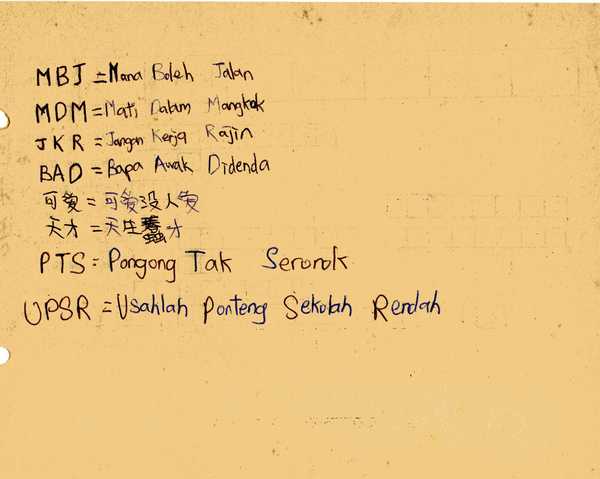 MBJ = Mana Boleh Jalan
MDM = Mati Dalam Mangkok
JKR = Jangan Kerja Rajin
BAD = Bapa Awak Didenda
可爱 = 可爱没人爱
天才 = 天生蠢才
PTS = Pongong Tak Seronok
UPSR = Usahlah Ponteng Sekolah Rendah